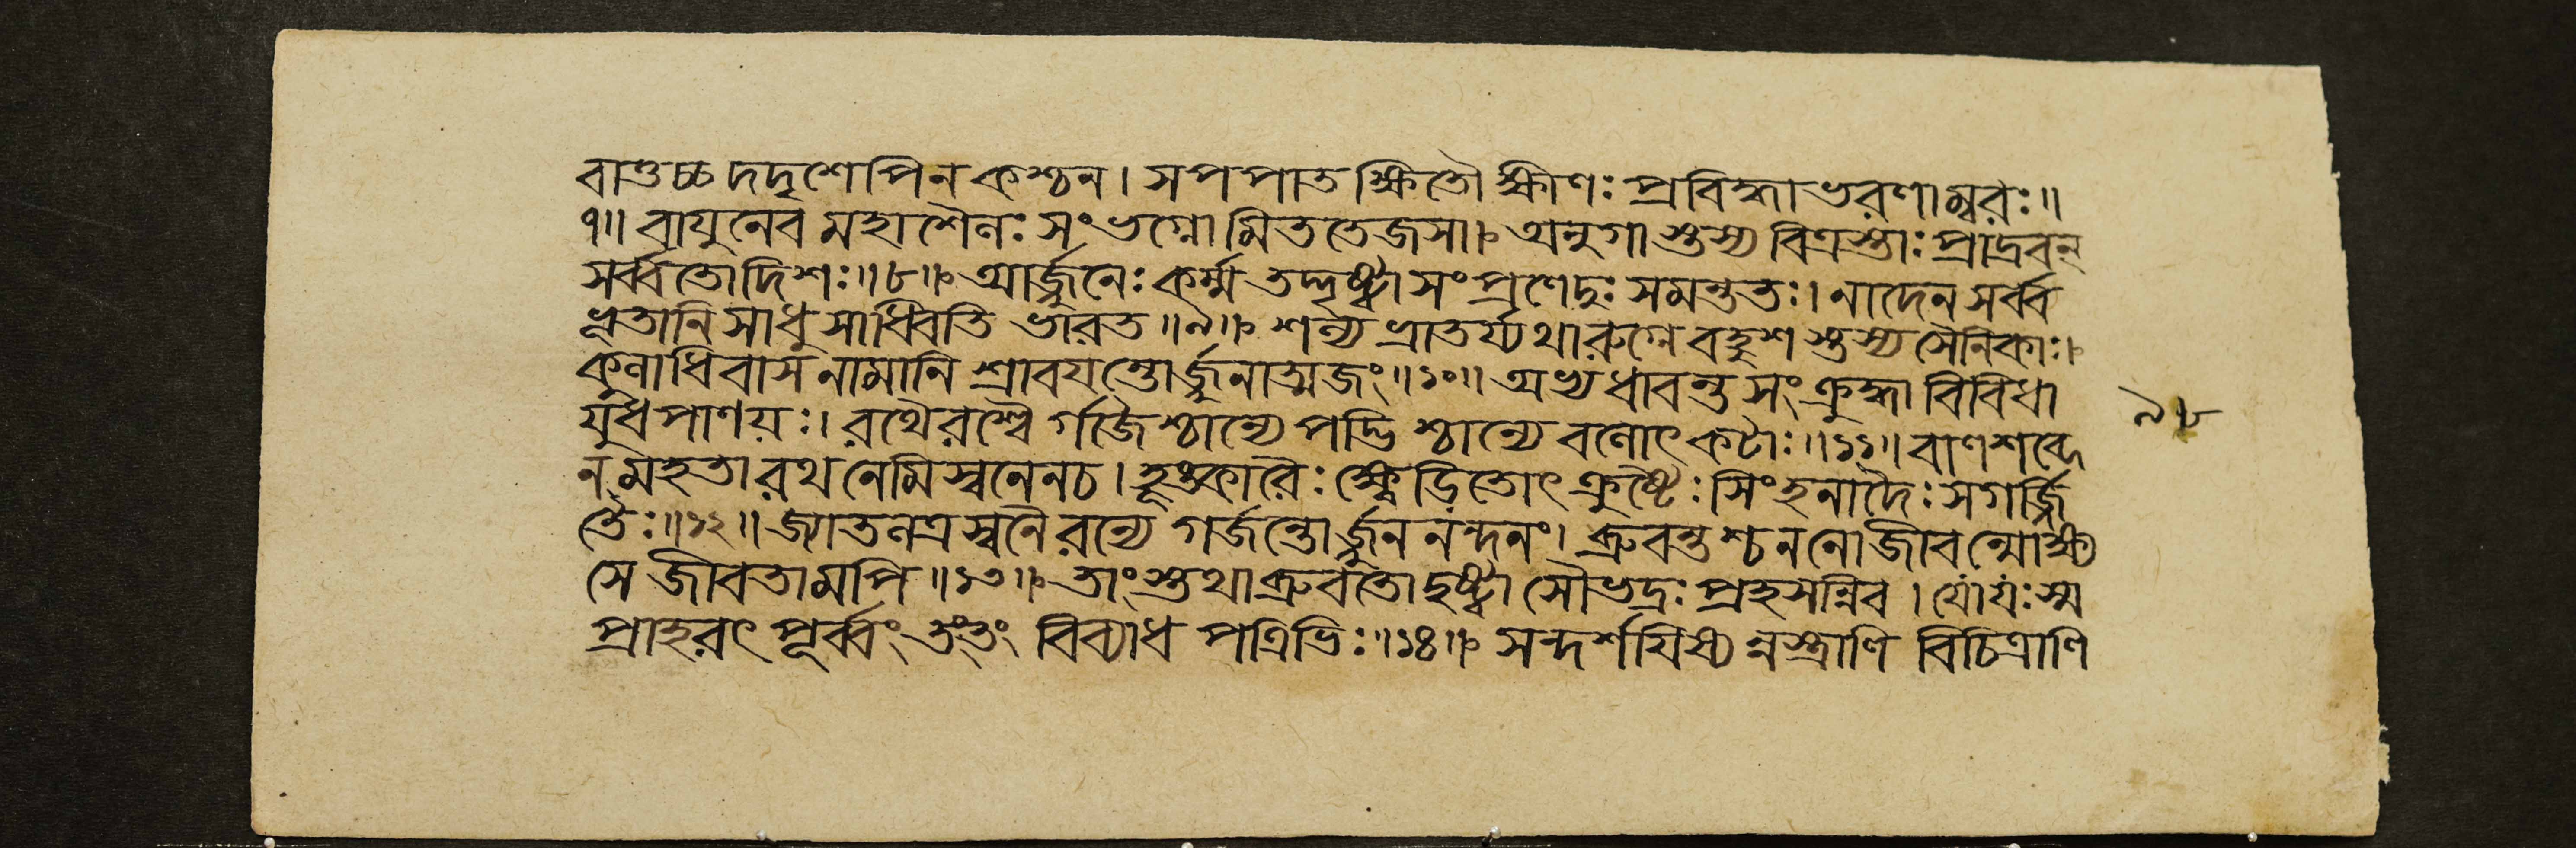 বাতুচ্চ দদৃশেপিন কশ্চন। সপপাত ক্ষিতৌ ক্ষীণঃ প্রবিদ্ধাভরণাম্বরঃ॥
৭॥ বায়ুনেব মহাশৈলঃ সংভগ্নোমিততেজসা। অনুগাস্তস্য বিত্রস্তাঃ প্রাদ্রবন্
সর্ব্বতোদিশঃ॥৮॥ আর্জ্জুনেঃ কর্ম্ম তদ্দৃষ্ট্বা সংপ্রণেদুঃ সমন্ততঃ। নাদেন সর্ব্ব
ভূতানি সাধু সাধ্বিতি ভারত॥৯॥ শল্য ভ্রাতর্য্যথারুগ্নে বহুশস্তস্য সৈনিকাঃ।
কুলাধিবাস নামানি শ্রাবয়ন্তোর্জ্জুনাত্মজং॥১০॥ অভ্যধাবন্ত সংক্রুদ্ধা বিবিধা
যুধপাণয়ঃ। রথৈরশ্বৈ র্গজৈশ্চান্যে পদ্ভিশ্চান্যে বলোৎকটাঃ॥১১॥ বাণশব্দে
ন মহতা রথনেমিস্বনেনচ। হূঙ্কারৈঃ ক্ষ্বেড়িতোৎক্রুষ্টৈঃ সিংহনাদৈঃ সগর্জ্জি
তৈঃ॥১২॥ জ্যাতলত্রস্বনৈরন্যে গর্জন্তোর্জ্জুননন্দনং। ব্রুবন্তশ্চননোজীবন্মোক্ষ্য
সে জীবতামপি॥১৩॥ তাংস্তথা ব্রুবতোদৃষ্ট্বা সৌভদ্রঃ প্রহসন্নিব। যোযঃস্ম
প্রাহরৎ পূর্ব্বং তংতং বিব্যাধ পত্রিভিঃ॥১৪॥ সন্দর্শয়িষ্যন্নস্ত্রাণি বিচিত্রাণি
৯৮